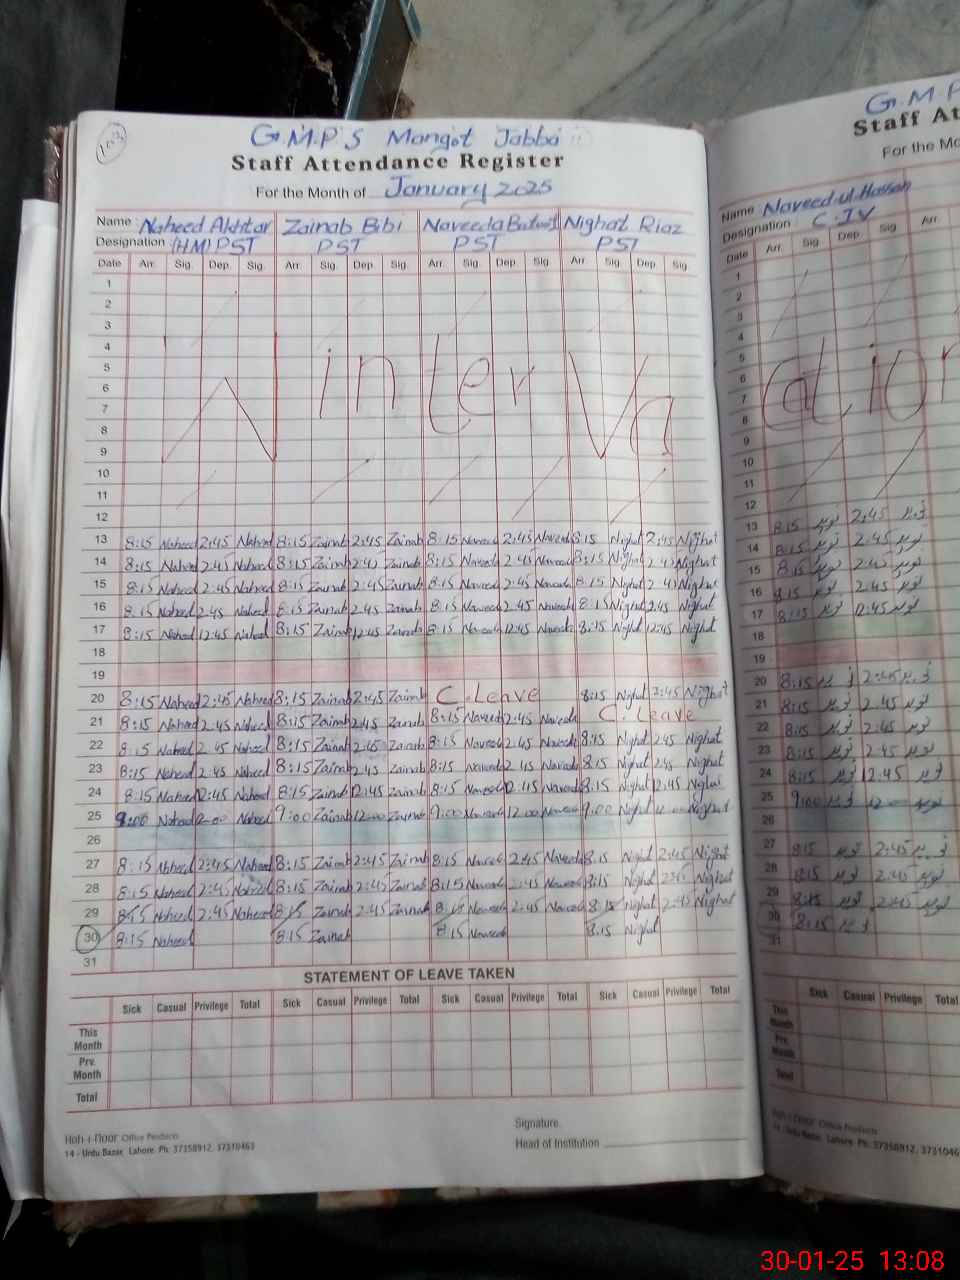 103
G.M.P.S Mangot Jabba
Staff Attendance Register
For the Month of January 2025
Name : Naheed Akhtar Zainab Bibi Naveeda Batool Nighat Riaz
Designation (HM) PST PST PST PST
Date Arr. Sig. Dep. Sig. Arr. Sig. Dep. Sig. Arr. Sig. Dep. Sig. Arr. Sig. Dep. Sig.
1
2
3
4
5
6
7
8
9
10
11
12
Winter Va
13 8:15 Naheed 2:45 Naheed 8:15 Zainab 2:45 Zainab 8:15 Naveed 2:45 Naveeda 8:15 Nighat 2:45 Nighat
14 8:15 Naheed 2:45 Naheed 8:15 Zainab 2:45 Zainab 8:15 Naveeda 2:45 Naveeda 8:15 Nighat 2:45 Nighat
15 8:15 Naheed 2:45 Naheed 8:15 Zainab 2:45 Zainab 8:15 Naveed 2:45 Naveeda 8:15 Nighat 2:45 Nighat
16 8:15 Naheed 2:45 Naheed 8:15 Zainab 2:45 Zainab 8:15 Naveed 2:45 Naveeda 8:15 Nighat 2:45 Nighat
17 8:15 Naheed 12:45 Naheed 8:15 Zainab 12:45 Zainab 8:15 Naveeda 12:45 Naveeda 8:15 Nighat 12:45 Nighat
18
19
20 8:15 Naheed 2:45 Naheed 8:15 Zainab 2:45 Zainab C.Leave 8:15 Nighat 2:45 Nighat
21 8:15 Naheed 2:45 Naheed 8:15 Zainab 2:45 Zainab 8:15 Naveed 2:45 Naveeda C. Leave
22 8:15 Naheed 2:45 Naheed 8:15 Zainab 2:45 Zainab 8:15 Naveed 2:45 Naveeda 8:15 Nighat 2:45 Nighat
23 8:15 Naheed 2:45 Naheed 8:15 Zainab 2:45 Zainab 8:15 Naveed 2:45 Naveeda 8:15 Nighat 2:45 Nighat
24 8:15 Naheed 12:45 Naheed 8:15 Zainab 12:45 Zainab 8:15 Naveed 12:45 Naveeda 8:15 Nighat 12:45 Nighat
25 9:00 Naheed 12:00 Naheed 9:00 Zainab 12:00 Zainab 9:00 Naveeda 12:00 Naveeda 9:00 Nighat 12:00 Nighat
26
27 8:15 Naheed 2:45 Naheed 8:15 Zainab 2:45 Zainab 8:15 Naveed 2:45 Naveeda 8:15 Nighat 2:45 Nighat
28 8:15 Naheed 2:45 Naheed 8:15 Zainab 2:45 Zainab 8:15 Naveed 2:45 Naveeda 8:15 Nighat 2:45 Nighat
29 8:15 Naheed 2:45 Naheed 8:15 Zainab 2:45 Zainab 8:15 Naveeda 2:45 Naveeda 8:15 Nighat 2:45 Nighat
30 8:15 Naheed 8:15 Zainab 8:15 Naveed 8:15 Nighat
31
STATEMENT OF LEAVE TAKEN
Sick Casual Privilege Total Sick Casual Privilege Total Sick Casual Privilege Total Sick Casual Privilege Total
This Month
Prv. Month
Total
Signature.
Head of Institution
Hoh-i-Noor Office Products
14 - Urdu Bazar, Lahore. Ph: 37358912, 37310463
G.M.P
Staff At
For the Mo
Name : Naveed ul Hassan
Designation : C.IV
Date Arr. Sig. Dep. Sig. Arr.
1
2
3
4
5
6
7
8
9
10
11
12
cation
13 8:15 نوید 2:45 نوید
14 8:15 نوید 2:45 نوید
15 8:15 نوید 2:45 نوید
16 8:15 نوید 2:45 نوید
17 8:15 نوید 12:45 نوید
18
19
20 8:15 نوید 2:45 نوید
21 8:15 نوید 2:45 نوید
22 8:15 نوید 2:45 نوید
23 8:15 نوید 2:45 نوید
24 8:15 نوید 12:45 نوید
25 9:00 نوید 12:00 نوید
26
27 8:15 نوید 2:45 نوید
28 8:15 نوید 2:45 نوید
29 8:15 نوید 2:45 نوید
30 8:15 نوید
31
Sick Casual Privilege Total
This Month
Prv. Month
Total
Hoh-i-Noor Office Products
14 - Urdu Bazar, Lahore. Ph: 37358912, 3731046
30-01-25 13:08